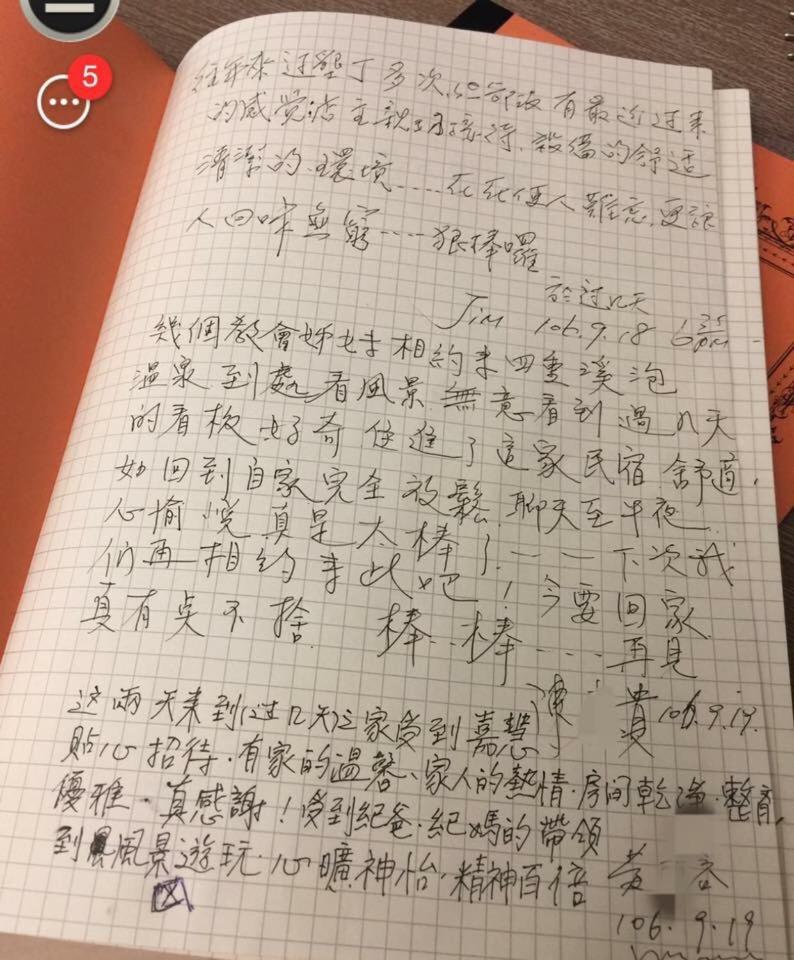 5
往年來过墾丁多次,但都没有最近过来
的感觉店主親切接待.設備的舒适
清潔的.環境....在在使人難忘,更讓
人回味無窮....狠棒囉
於过几天
Jim 106.9.18 6 25 pm
幾個教會姊妹相約来四重溪泡
温泉到處看風景無意看到過几天
的看板好奇住進了這家民宿舒適,
如回到自家完全放鬆,聊天至半夜
心愉悅真是太棒了——下次我
们再相約来此吧!今要回家
真有点不捨.棒..棒....再見
陳 貴 106.9.19.
这兩天来到(过几天)之家受到嘉慧
貼心招待.有家的溫馨、家人的熱情.房间乾净.整齊,
優雅.真感謝!受到紀爸.紀媽的帶领
到風景遊玩.心曠神怡.精神百倍
黃 容
106.9.19